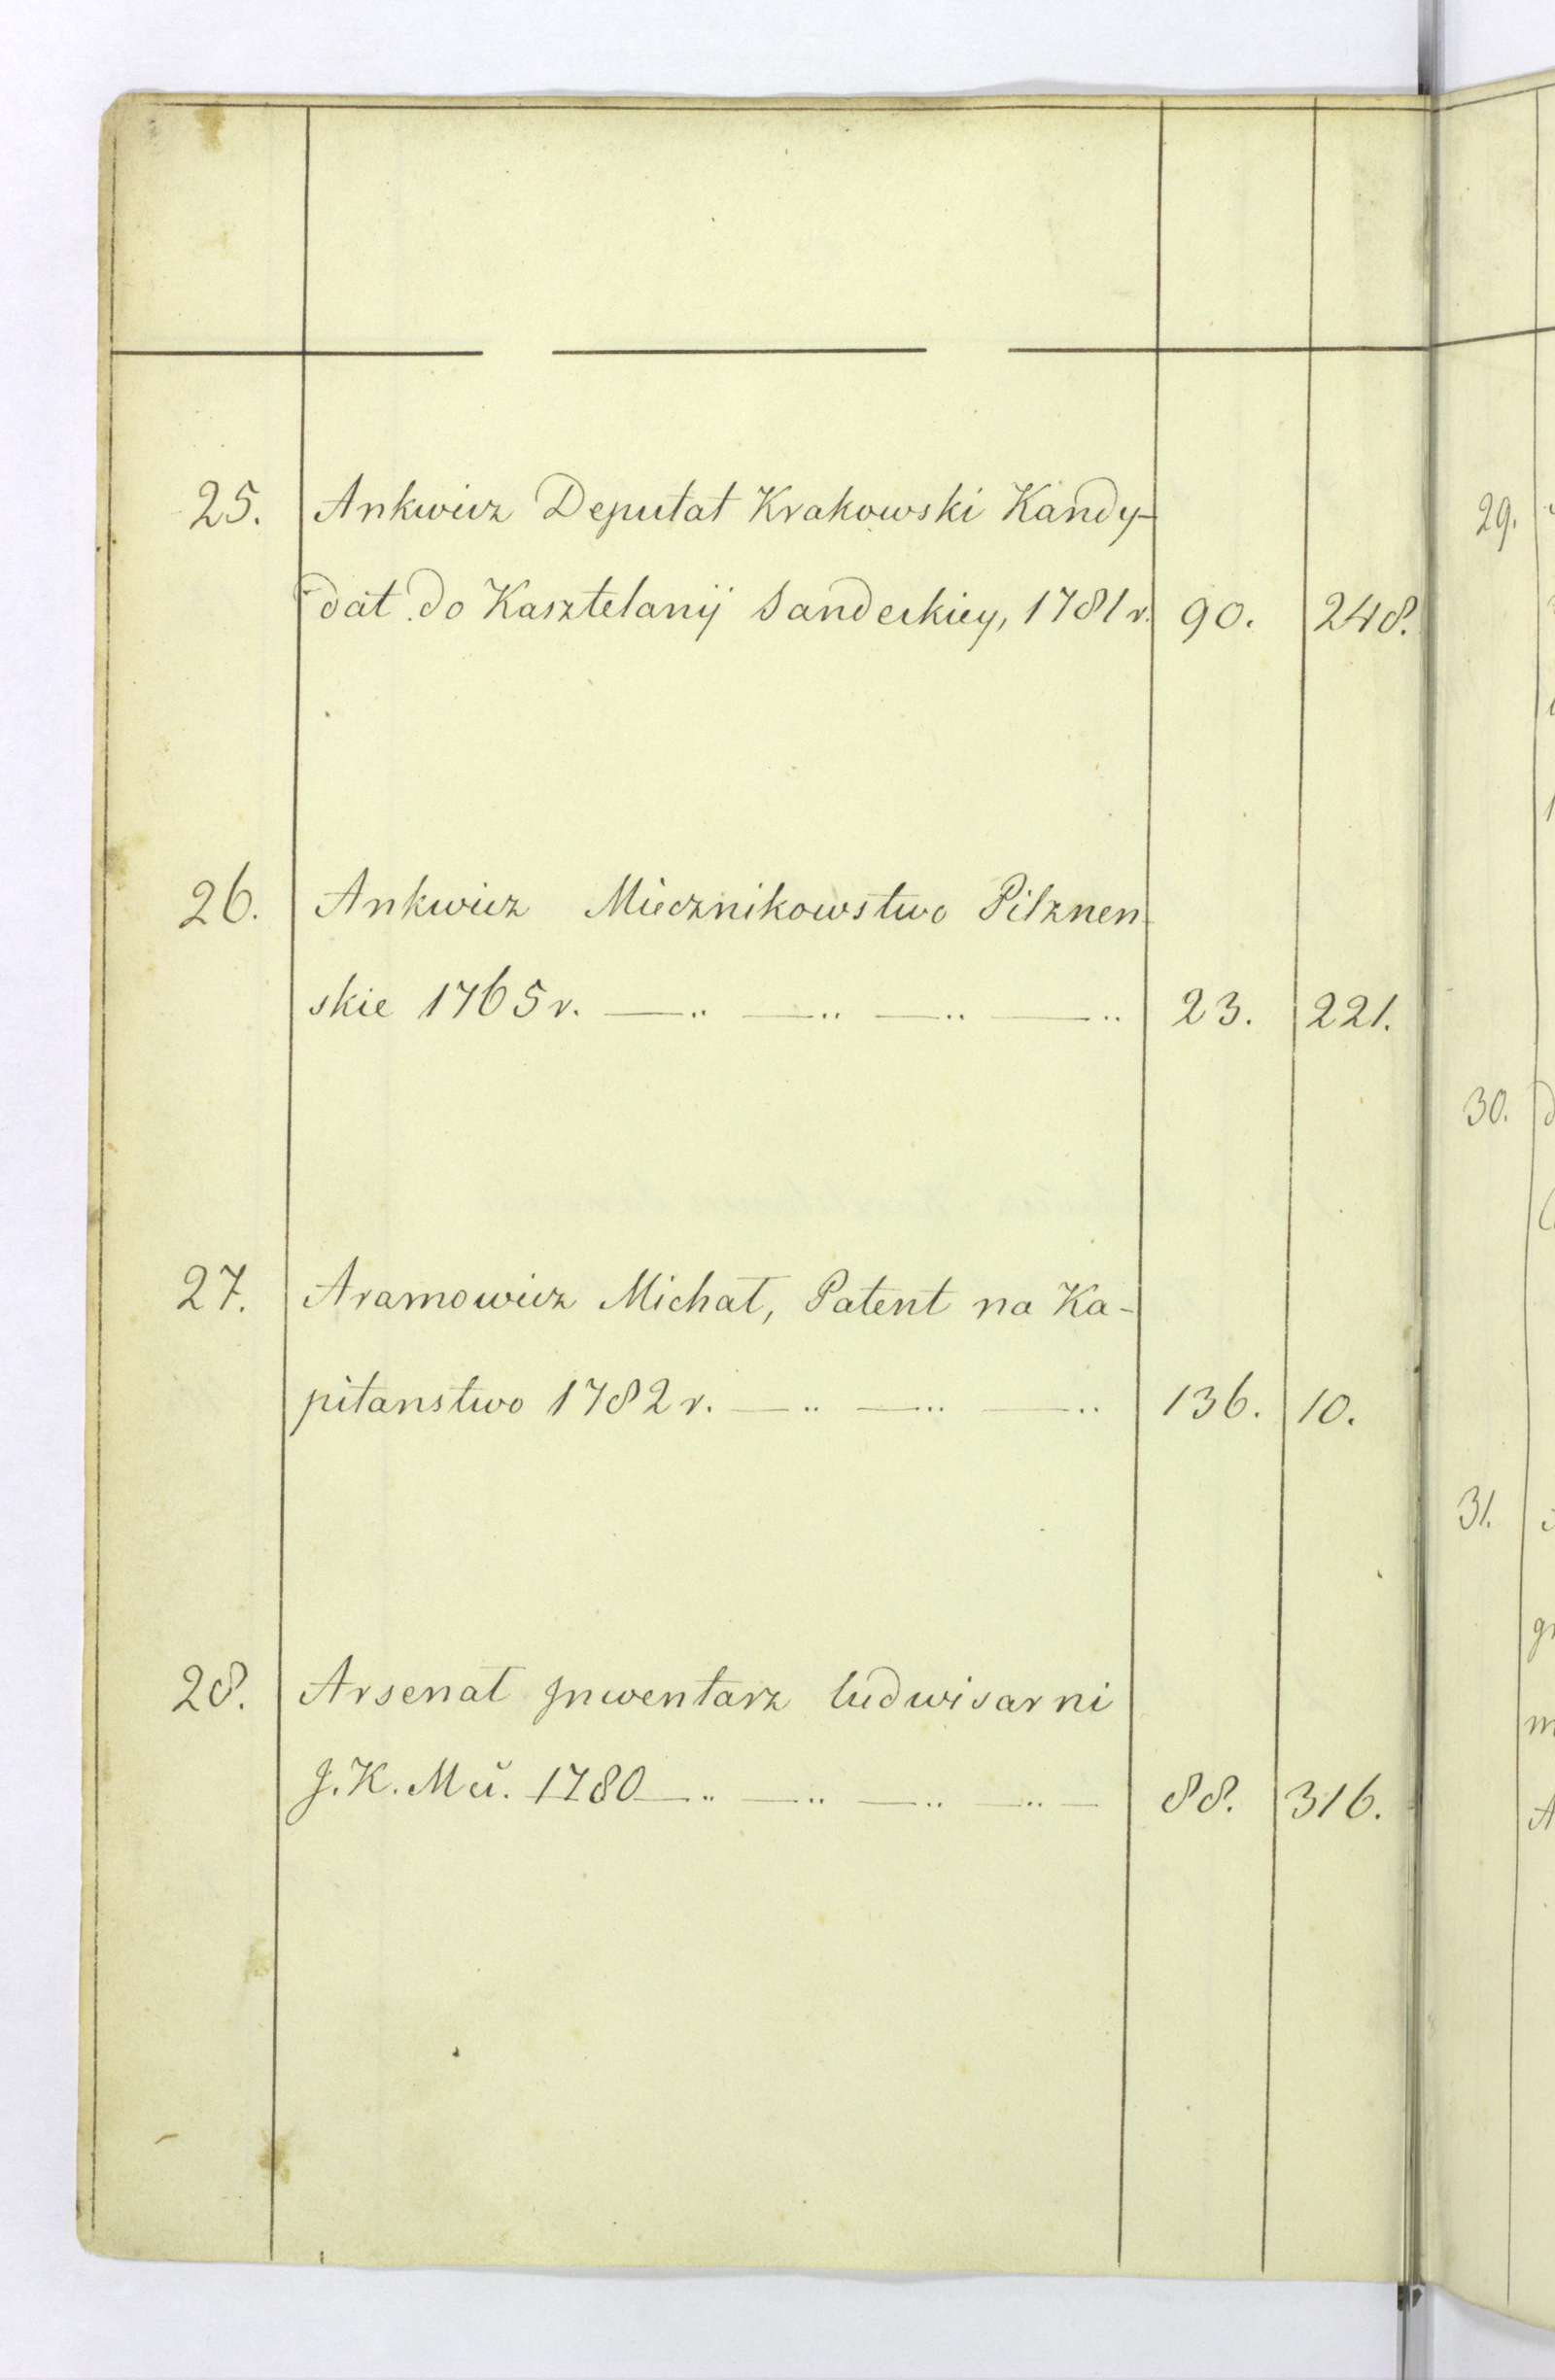 25. Ankwicz Deputat Krakowski Kandy-
dat do Kasztelanij Sandeckiey, 1781 r. 90. 248.
26. Ankwicz Miecznikowstwo Pilznen-
skie 1765 r. 23. 221.
27. Aramowicz Michał, Patent na Ka-
pitanstwo 1782 r. 136. 10.
28. Arsenał Jnwentarz ludwisarni
J. K. Mci. 1780 88. 316.
29.
30.
31.